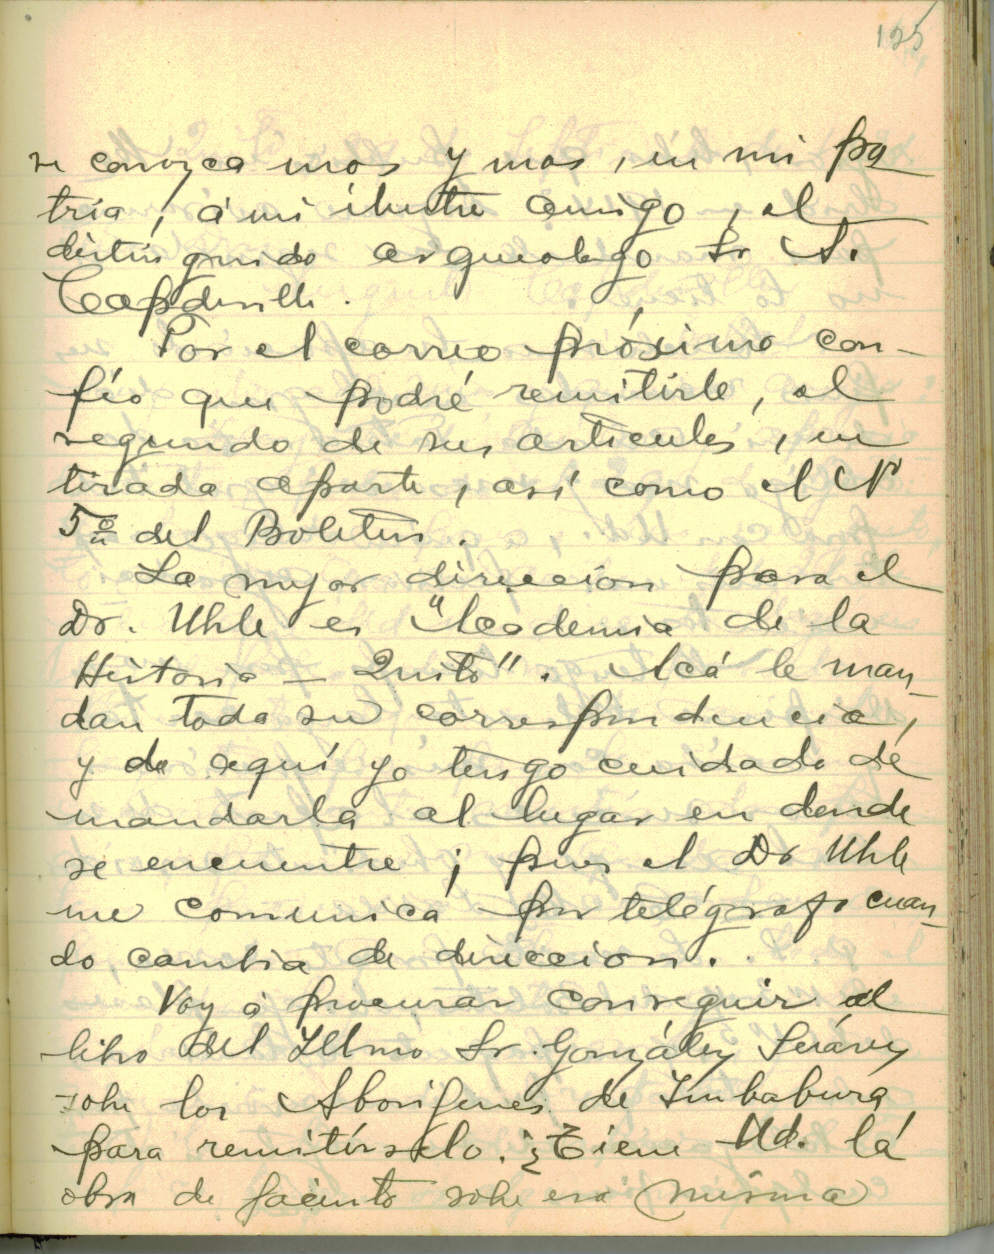 125
se conozca mas y mas, en mi pa
tria, á mi ilustre amigo, el
distinguido arqueologo Sr A.
Capdeville.
Por el correo próximo con-
fío que podré remitirle, el
segundo de sus articulos, en
tirada aparte, así como el Nº
5º del Boletin.
La mejor direccion para el
Dr. Uhle es "Academia de la
Historia - Quito". Acá le man-
dan toda su correspondencia,
y de aquí yo tengo cuidado de
mandarla al lugar en donde
se encuentre; pues el Dr Uhle
me comunica por telégrafo cuan-
do cambia de direccion.
Voy á procurar conseguir el
libro del Illmo Sr. González Suárez
sobre los Aborigenes de Imbabura
para remitírselo. ¿Tiene Ud. la
obra de Jacinto sobe esa misma